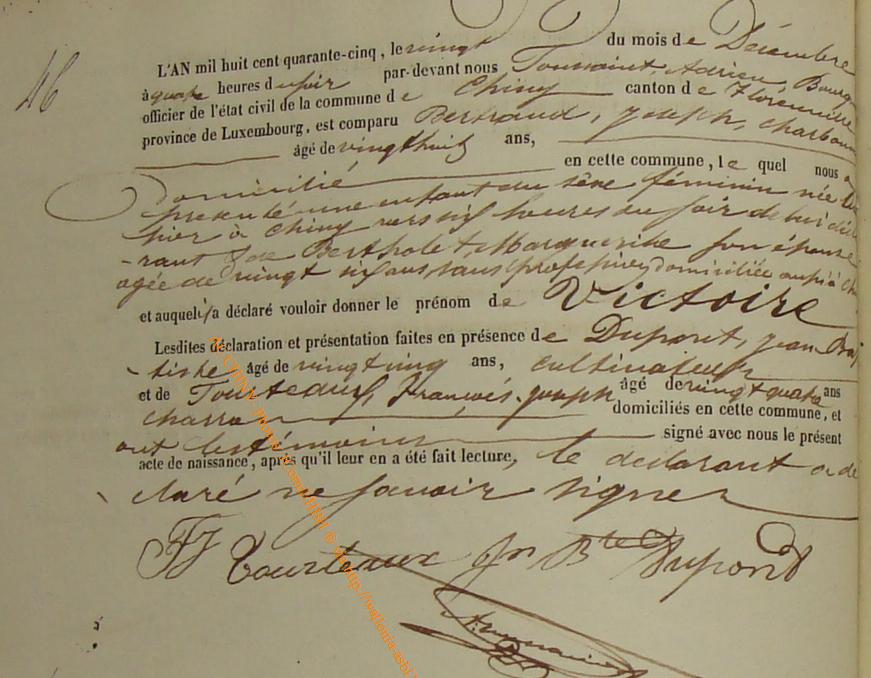 46
L'AN mil huit cent quarante-cinq, le vingt du mois de Décembre
à quatre heures du soir par-devant nous Toussaint, Adrien, Bourg
officier de l'état civil de la commune de Chiny canton de Florenville
province de Luxembourg, est comparu Bertrand, joseph, charbonn
âgé de vingt huit ans,
en cette commune, le quel nous a
Domicilié
présenté une enfant du sèxe féminin née
hier à Chiny vers six heures du soir de lui décla
-rant & de Bertholet, Marguerite son épouse
agée de vingt six ans, sans profession, domiciliée aussi à Chi
et auquel il a déclaré vouloir donner le prénom de Victoire
Lesdites déclaration et présentation faites en présence de Dupont, jean Bap
-tiste âgé de vingt cinq ans, cultivateur
et de Tourteaux, François, joseph âgé de vingt quatre ans
domiciliés en cette commune, et
ont les témoins signé avec nous le présent
acte de naissance, après qu'il leur en a été fait lecture, le déclarant a dé
claré ne savoir signer
FJ Tourteaux jn Bte Dupont